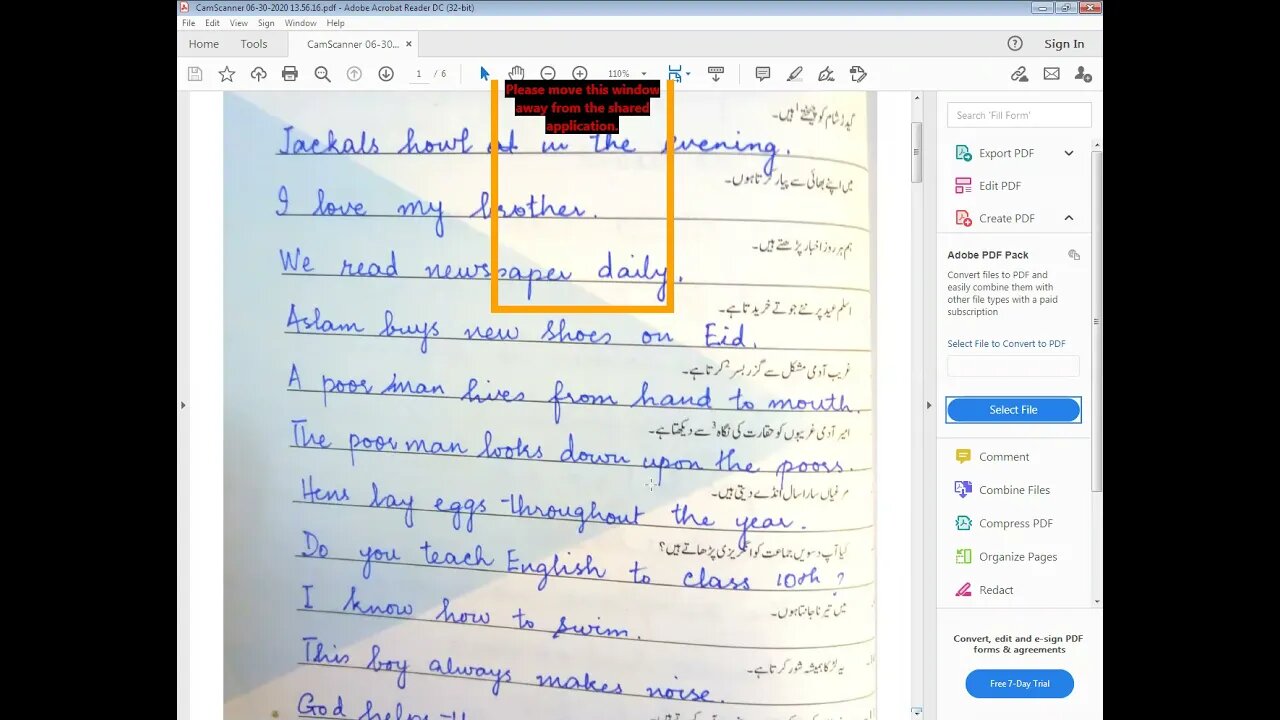 CamScanner 06-30-2020 13.56.16.pdf - Adobe Acrobat Reader DC (32-bit)
File Edit View Sign Window Help
Home Tools CamScanner 06-30... × Sign In
1 / 6 110%
Please move this window
away from the shared
application.
گیدڑ شام کو چیختے¹ ہیں۔
Jackals howl in the evening.
میں اپنے بھائی سے پیار کرتا ہوں۔
I love my brother.
ہم ہر روز اخبار پڑھتے ہیں۔
We read newspaper daily.
اسلم عید پر نئے جوتے خریدتا ہے۔
Aslam buys new shoes on Eid.
غریب آدمی مشکل سے گزر بسر² کرتا ہے۔
A poor man lives from hand to mouth.
امیر آدمی غریبوں کو حقارت کی نگاہ³ سے دیکھتا ہے۔
The poor man looks down upon the poors.
مرغیاں سارا سال انڈے دیتی ہیں۔
Hens lay eggs throughout the year.
کیا آپ دسویں جماعت کو انگریزی پڑھاتے ہیں؟
Do you teach English to class 10th ?
میں تیرنا جانتا ہوں۔
I know how to swim.
یہ لڑکا ہمیشہ شور کرتا ہے۔
This boy always makes noise.
God helps
Search 'Fill Form'
Export PDF
Edit PDF
Create PDF
Adobe PDF Pack
Convert files to PDF and
easily combine them with
other file types with a paid
subscription
Select File to Convert to PDF
Select File
Comment
Combine Files
Compress PDF
Organize Pages
Redact
Convert, edit and e-sign PDF
forms & agreements
Free 7-Day Trial